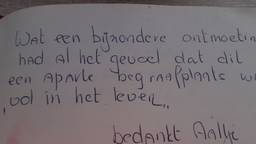 Wat een bijzondere ontmoetin
had al het gevoel dat dit
een Aparte begraafplaats w
vol in het leven,,
bedankt Aallje